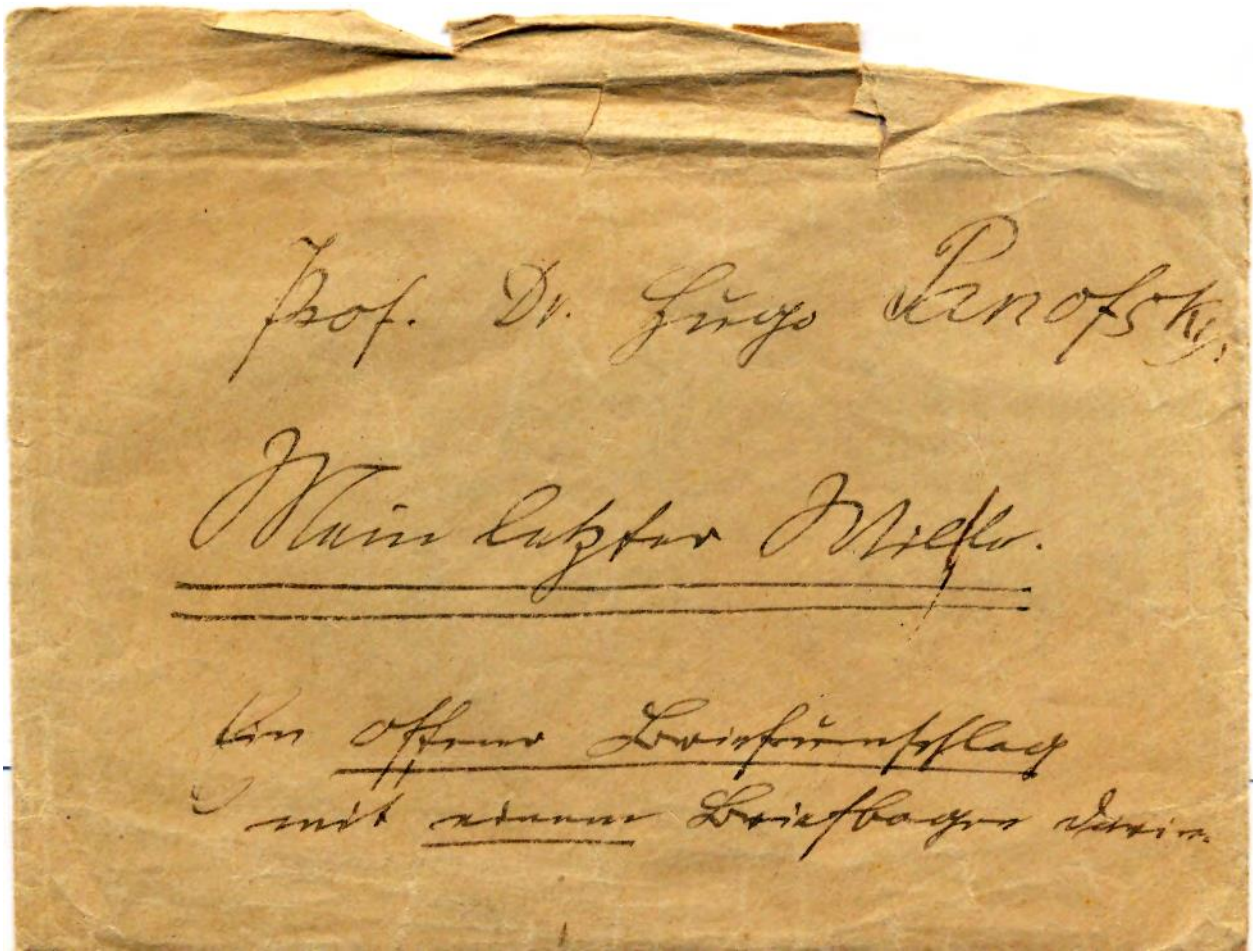 Prof. Dr. Hugo Panofsky.
Mein letzter Wille.
Ein offener Briefumschlag
mit einem Briefbogen darin.